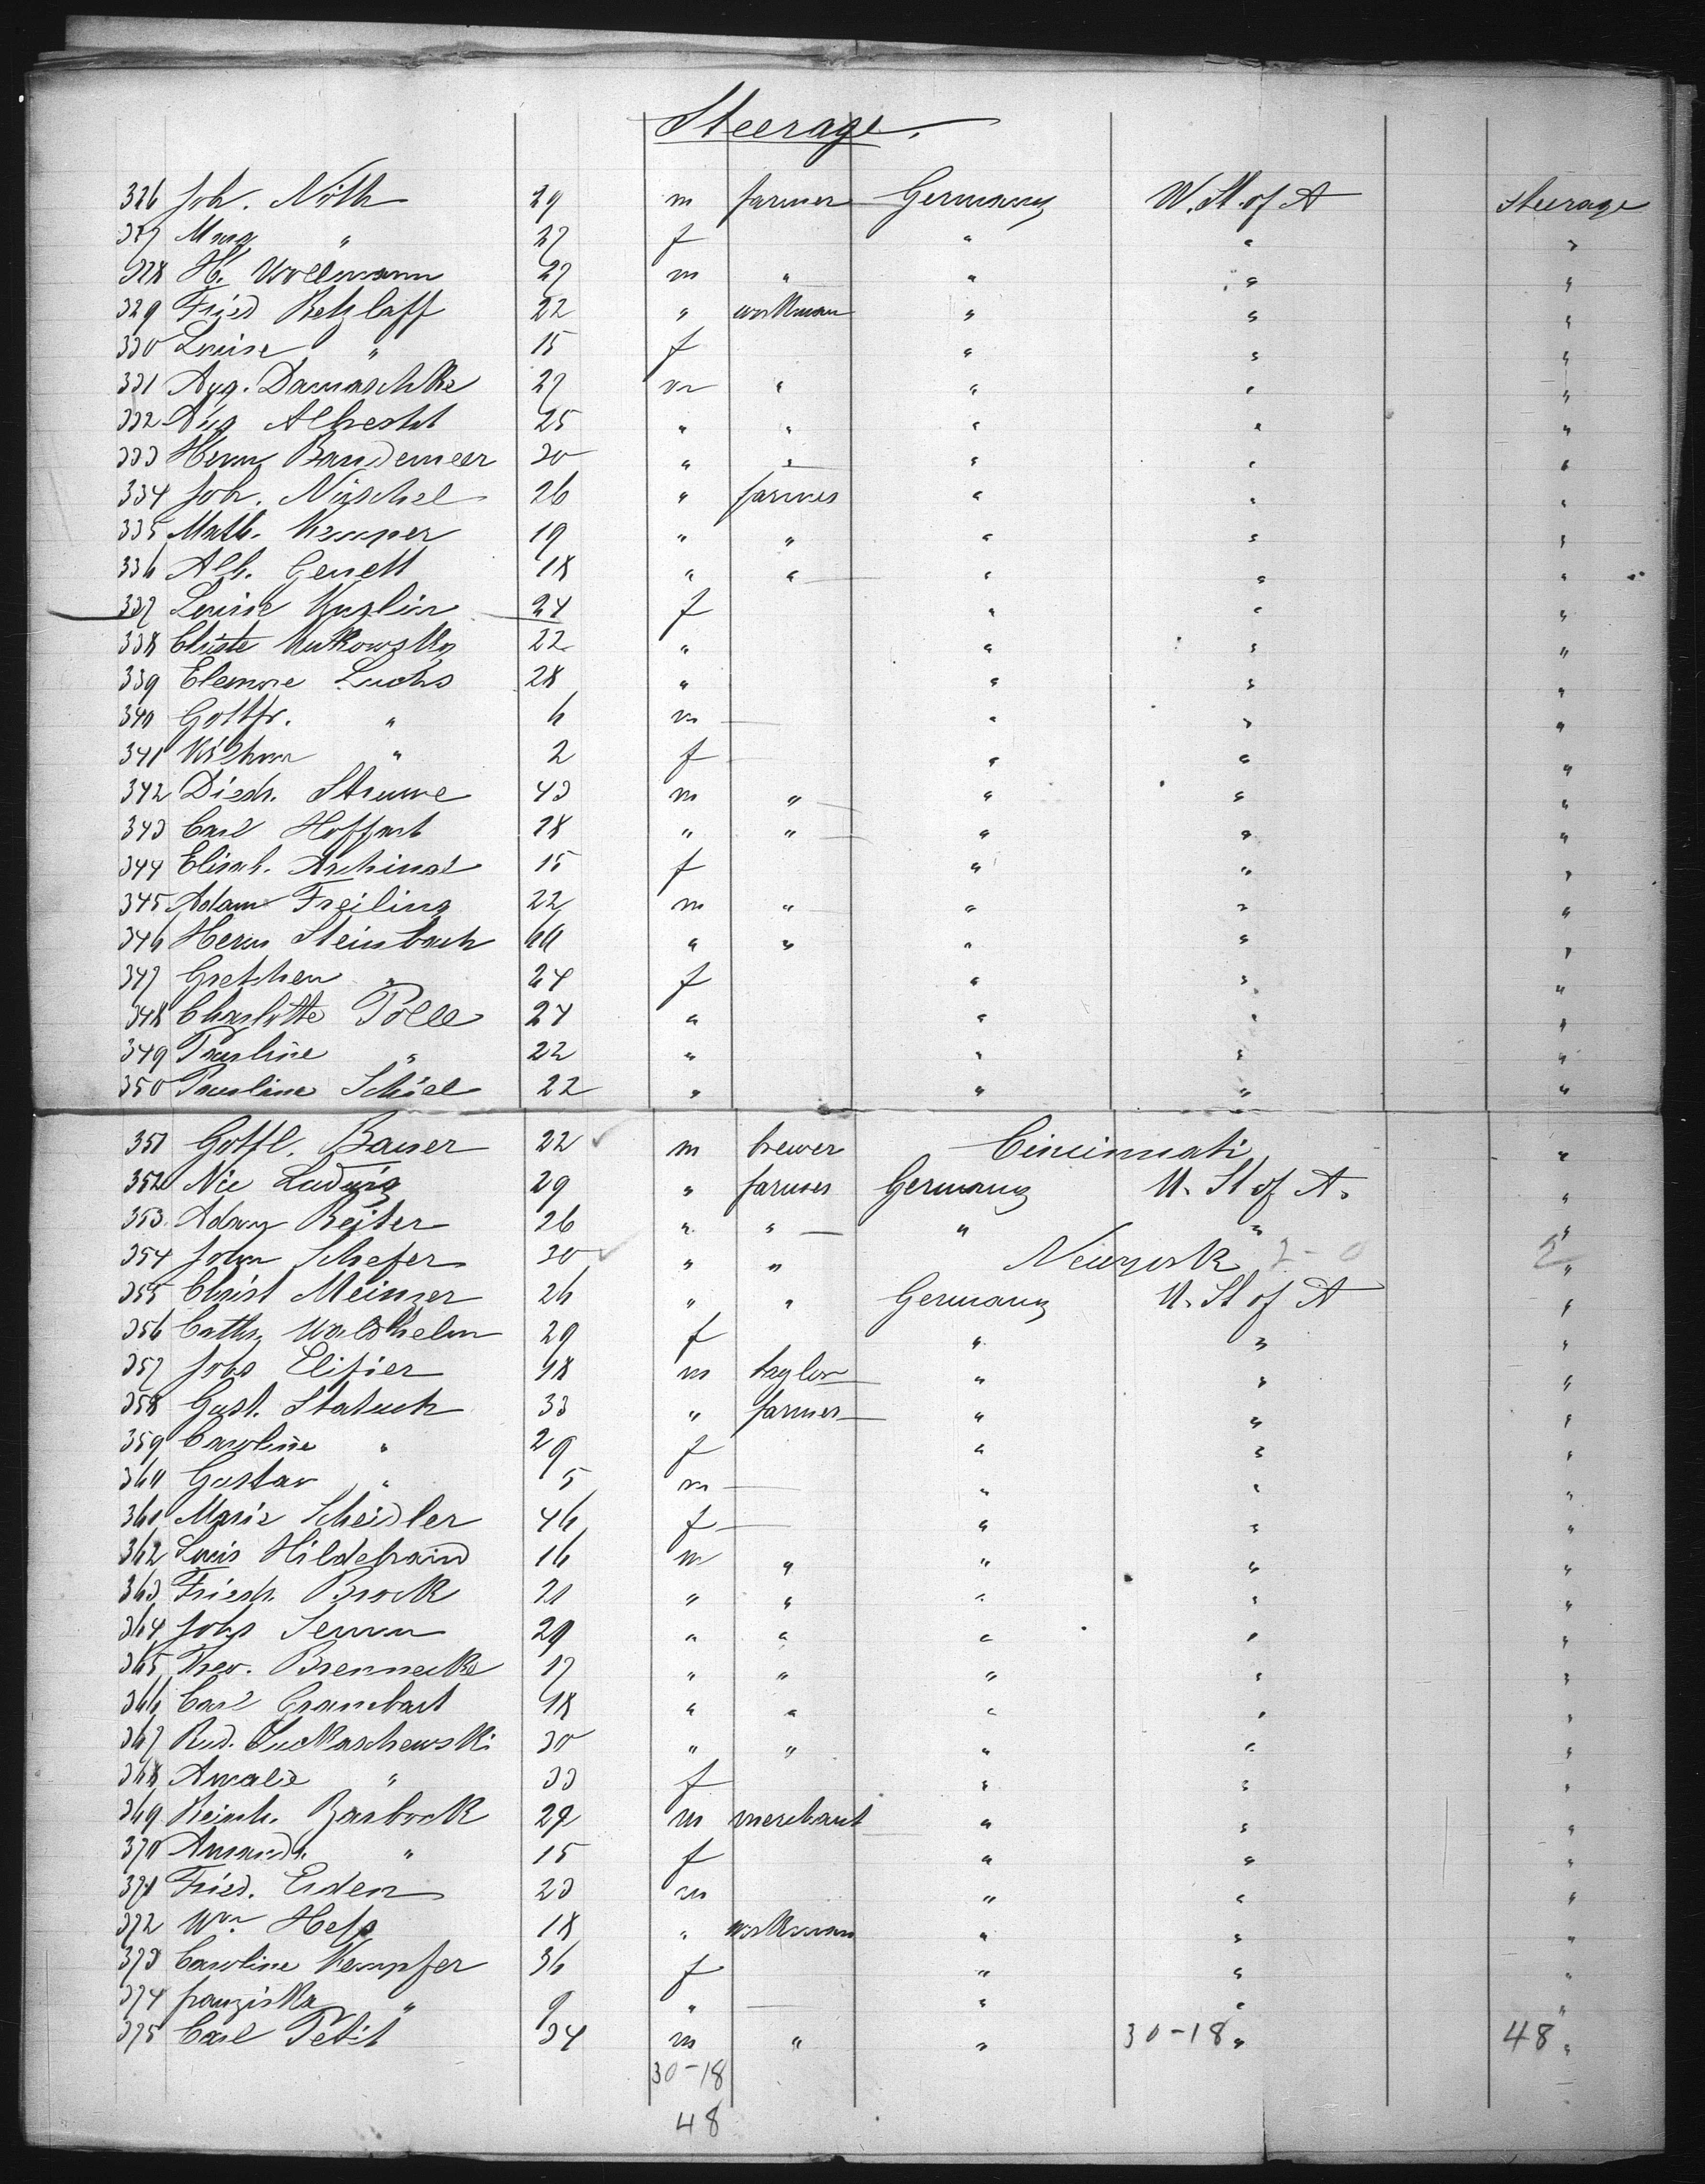 Steerage.
326 Joh. Nöth 29 m farmer Germany U. St. of A Steerage
327 Marg " 27 f " " "
328 H. Wollmann 27 m " " " "
329 Fried Retzlaff 22 " workman " " "
330 Louise " 15 f " " "
331 Aug. Damaschke 27 m " " " "
332 Aug Albrecht 25 " " " " "
333 Herm Bandemeer 30 " " " " "
334 Joh. Nirschel 26 " farmer " " "
335 Math. Kemper 19 " " " " "
336 Alb. Genett 18 " " " " "
337 Louise 24 f " " "
338 Christe Kutkowsky 22 " " " "
339 Eleonore Luchs 28 " " " "
340 Gottfr. " 6 m " " "
341 Wilhm " 2 f " " "
342 Diedr. Struwe 43 m " " " "
343 Carl Hoffart 28 " " " " "
344 Elisab. Aschinal 15 f " " "
345 Adam Freiling 22 m " " " "
346 Herm Steinbach 60 " " " " "
347 Gretchen " 24 f " " "
348 Charlotte Polle 24 " " " "
349 Pauline " 22 " " " "
350 Pauline Schiel 22 " " " "
351 Gottl. Bauer 22 m brewer Cincinnati "
352 Nic Ludwig 29 " farmer Germany U. St of A. "
353 Adam Reiter 26 " " " " "
354 John Schefer 30 " " Newyork 2-0 2 "
355 Christ Meinzer 26 " " Germany U. St of A "
356 Cathr Waldhelm 29 f " " "
357 Johs Elifier 18 m taylor " " "
358 Gust. Statuch 33 " farmer " " "
359 Caroline " 29 f " " "
360 Gustav " 5 m " " "
361 Marie Scheidler 46 f " " "
362 Louis Hildebrand 16 m " " " "
363 Friedr. Brock 21 " " " " "
364 Johs 29 " " " " "
365 Theo. Brennecke 17 " " " " "
366 Carl Grambart 18 " " " " "
367 Rud. Luckaschewski 30 " " " " "
368 Amalie " 33 f " " "
369 Reinh. Barbock 29 m merchant " " "
370 Amanda " 15 f " " "
371 Fried. Erden 23 m " " "
372 Wm Hess 18 " workman " " "
373 Caroline Kempfer 36 f " " "
374 Franziska " 9 " " " "
375 Carl Petit 34 m " " 30-18 " 48 "
30-18
48